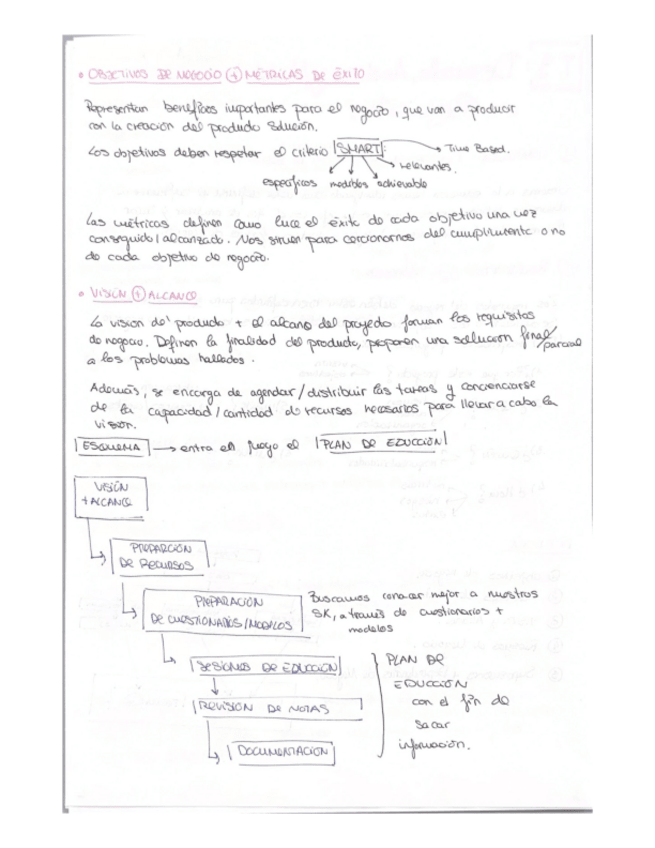 • OBJETIVOS DE NEGOCIO + MÉTRICAS DE ÉXITO
Representan beneficios importantes para el negocio, que van a producir
con la creación del producto solución.
Los objetivos deben respetar el criterio SMART: → Time Based.
→ relevantes.
específicos medibles achievable
Las métricas definen como luce el éxito de cada objetivo una vez
conseguido/alcanzado. Nos sirven para cercionarnos del cumplimiento o no
de cada objetivo de negocio.
• VISIÓN + ALCANCE
La visión del producto + el alcance del proyecto forman los requisitos
de negocio. Definen la finalidad del producto, proponen una solución final/parcial
a los problemas hallados.
Además, se encarga de agendar/distribuir las tareas y concienciarse
de la capacidad/cantidad de recursos necesarios para llevar a cabo la
visión.
ESQUEMA → entra en juego el PLAN DE EDUCCIÓN
VISIÓN
+ ALCANCE
PREPARCIÓN
DE RECURSOS
PREPARACIÓN
DE CUESTIONARIOS/MODELOS
Buscamos conocer mejor a nuestros
SK, a través de cuestionarios +
modelos
SESIONES DE EDUCCIÓN
REVISIÓN DE NOTAS
DOCUMENTACIÓN
PLAN DE
EDUCCIÓN
con el fin de
sacar
información.